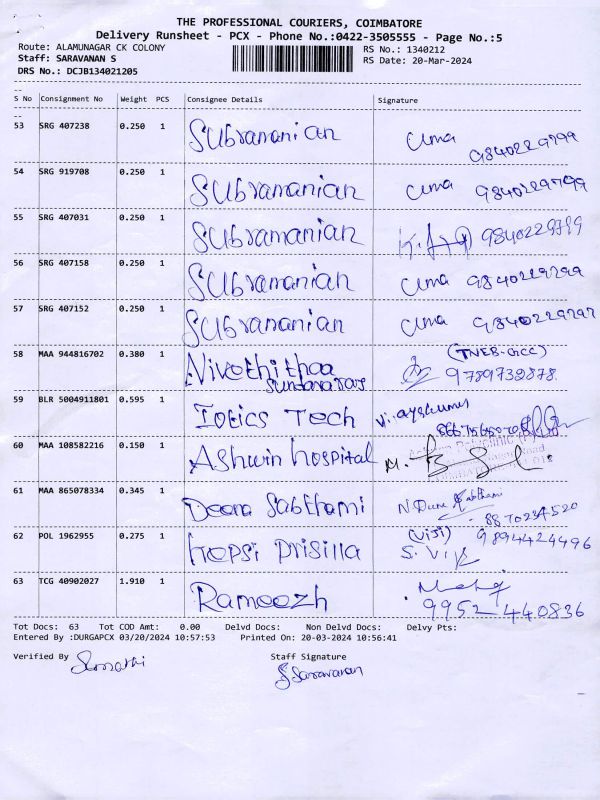 THE PROFESSIONAL COURIERS, COIMBATORE
Delivery Runsheet - PCX - Phone No.:0422-3505555 - Page No.:5
Route: ALAMUNAGAR CK COLONY RS No.: 1340212
Staff: SARAVANAN S RS Date: 20-Mar-2024
DRS No.: DCJB134021205
S No Consignment No Weight PCS Consignee Details Signature
53 SRG 407238 0.250 1 Subramanian Uma 9840229799
54 SRG 919708 0.250 1 Subramanian Uma 9840229799
55 SRG 407031 0.250 1 Subramanian 9840229799
56 SRG 407158 0.250 1 Subramanian Uma 9840229799
57 SRG 407152 0.250 1 Subramanian Uma 9840229797
58 MAA 944816702 0.380 1 Nivethithaa (TNEB-GCC)
Sundararaj 9789739878.
59 BLR 5004911801 0.595 1 Iotics Tech Vijayakumar
60 MAA 108582216 0.150 1 Ashwin hospital M.
61 MAA 865078334 0.345 1 Deena Sabthami N
8870234520
62 POL 1962955 0.275 1 hepsi prisilla (Viji) 9894424496
S. Viji
63 TCG 40902027 1.910 1 Rameezh
9952440836
Tot Docs: 63 Tot COD Amt: 0.00 Delvd Docs: Non Delvd Docs: Delvy Pts:
Entered By :DURGAPCX 03/20/2024 10:57:53 Printed On: 20-03-2024 10:56:41
Verified By Staff Signature
S Saravanan